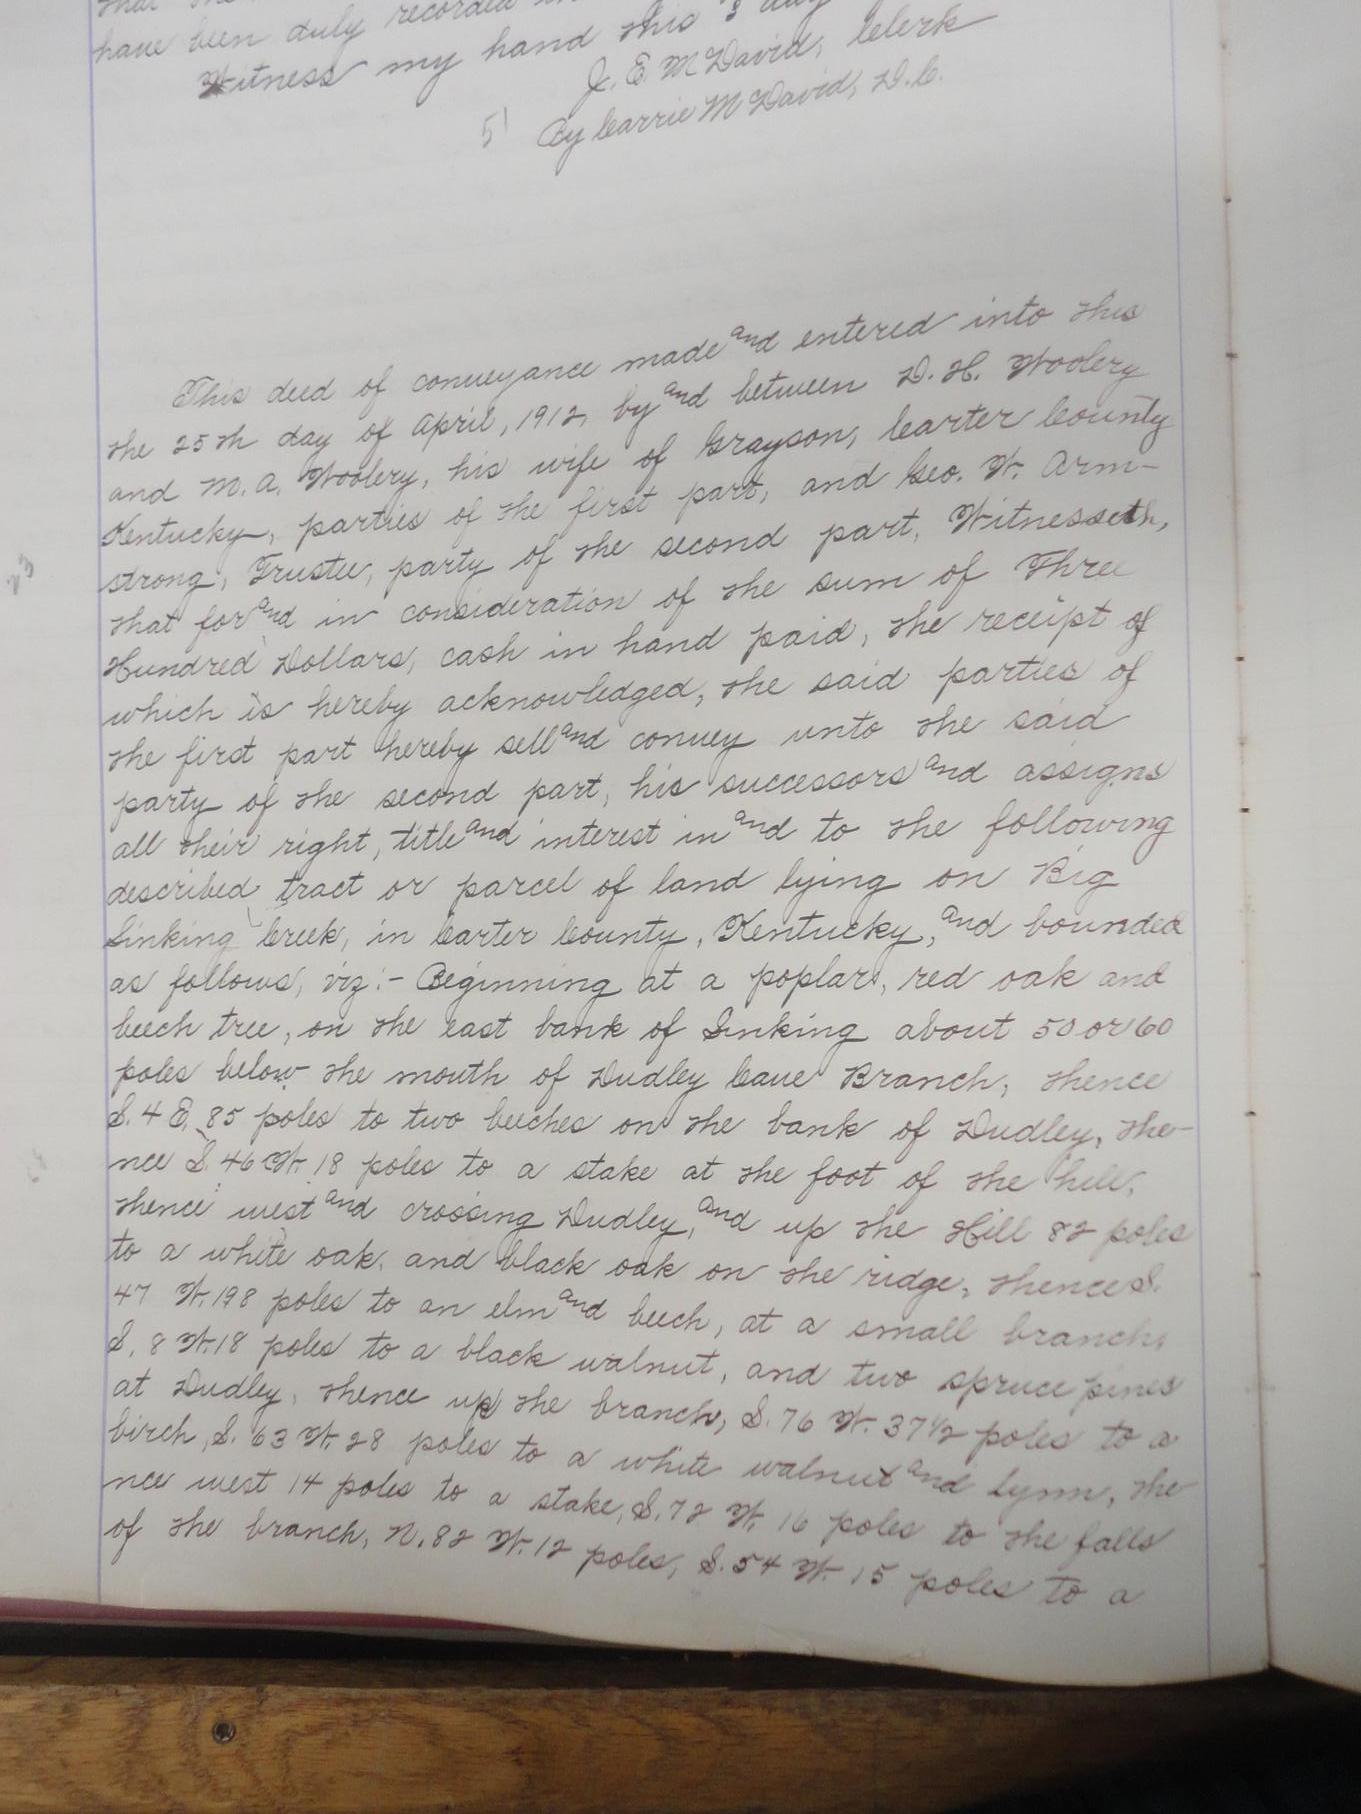 have been duly recorded
Witness my hand this 3 day
J. E. McDavid, Clerk
51 By Carrie McDavid, D.C.
This deed of conveyance made and entered into this
the 25th day of April, 1912, by and between D. H. Woolery
and M. A. Woolery, his wife of Grayson, Carter County
Kentucky, parties of the first part, and Geo. W. Arm-
strong, Trustee, party of the second part, Witnesseth,
that for and in consideration of the sum of Three
Hundred Dollars, cash in hand paid, the receipt of
which is hereby acknowledged, the said parties of
the first part hereby sell and convey unto the said
party of the second part, his successors and assigns
all their right, title and interest in and to the following
described tract or parcel of land lying on Big
Sinking Creek, in Carter County, Kentucky, and bounded
as follows, viz:- Beginning at a poplar, red oak and
beech tree, on the east bank of Sinking about 50 or 60
poles below the mouth of Dudley Cave Branch, thence
S. 4 E. 85 poles to two beeches on the bank of Dudley, the-
nce S. 46 W. 18 poles to a stake at the foot of the hill,
thence west and crossing Dudley, and up the Hill 82 poles
to a white oak, and black oak on the ridge, thence S.
47 W. 198 poles to an elm and beech, at a small branch,
S. 8 W. 18 poles to a black walnut, and two spruce pines
at Dudley, thence up the branch, S. 76 W. 37 1/2 poles to a
birch, S. 63 W. 28 poles to a white walnut and lynn, the-
nce west 14 poles to a stake, S. 72 W. 16 poles to the falls
of the branch, N. 82 W. 12 poles, S. 54 W. 15 poles to a